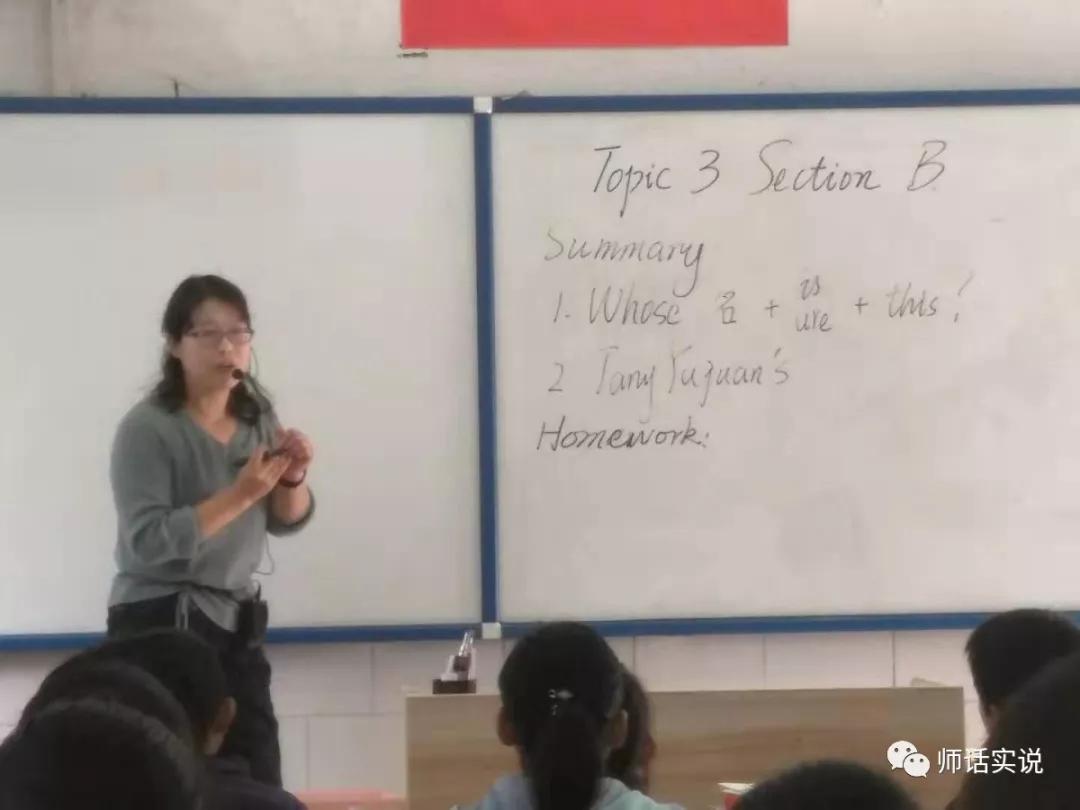 Topic 3 Section B
Summary
1. Whose 名 + is are + this?
2 Tang Yujuan's
Homework:
师话实说